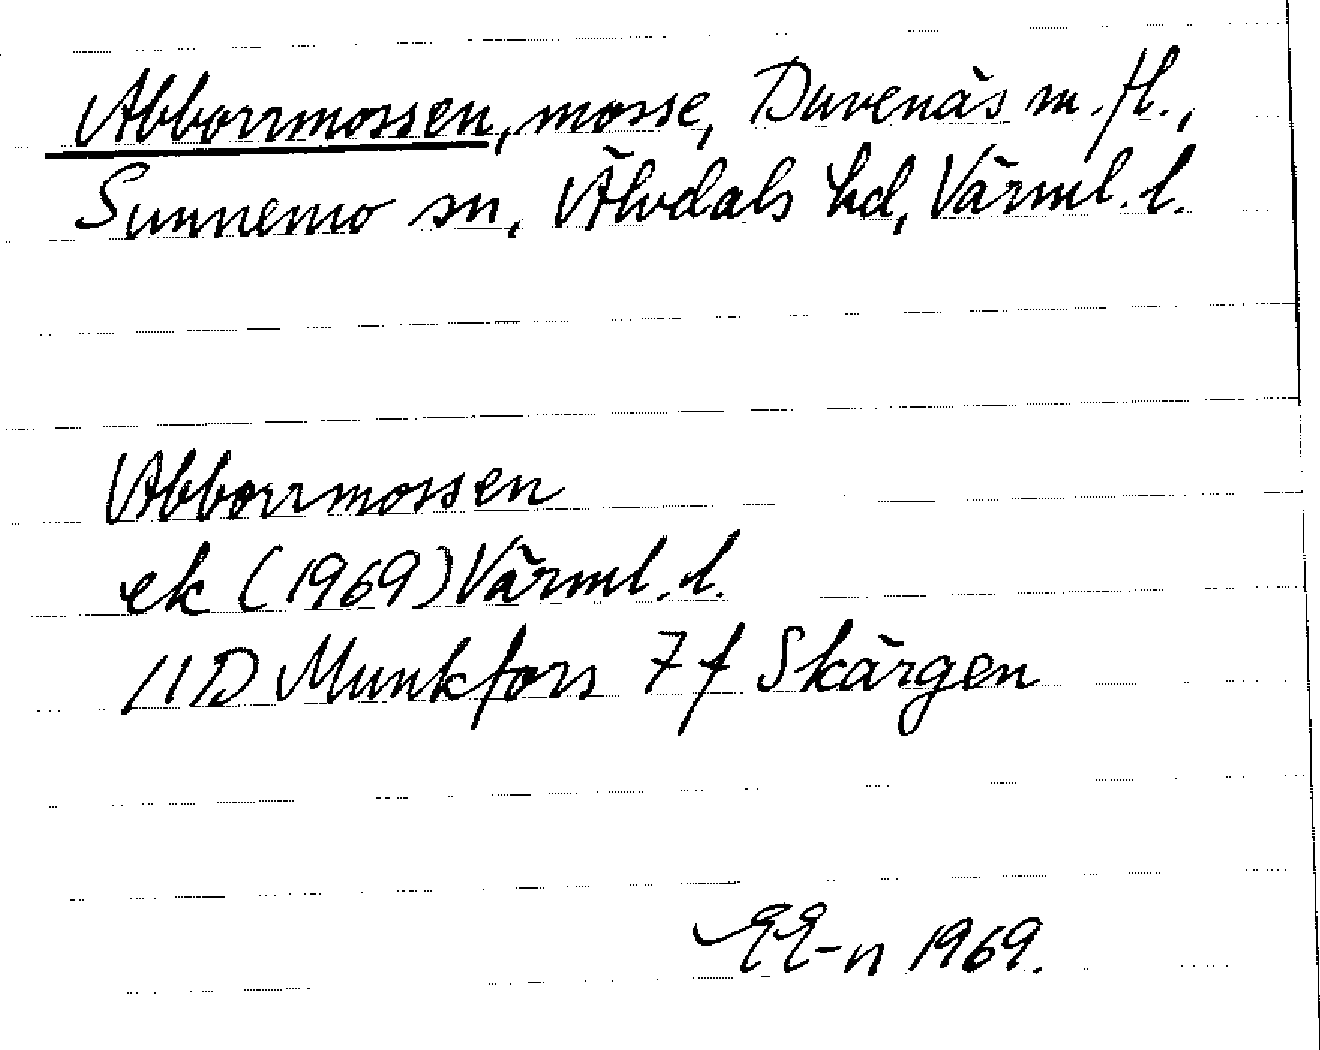 Abborrmossen, mosse, Duvenäs m.fl.,
Sunnemo sn, Älvdals hd, Värml. l.
Abborrmossen
ek (1969) Värml. l.
11D Munkfors 7f Skärgen
EE-n 1969.